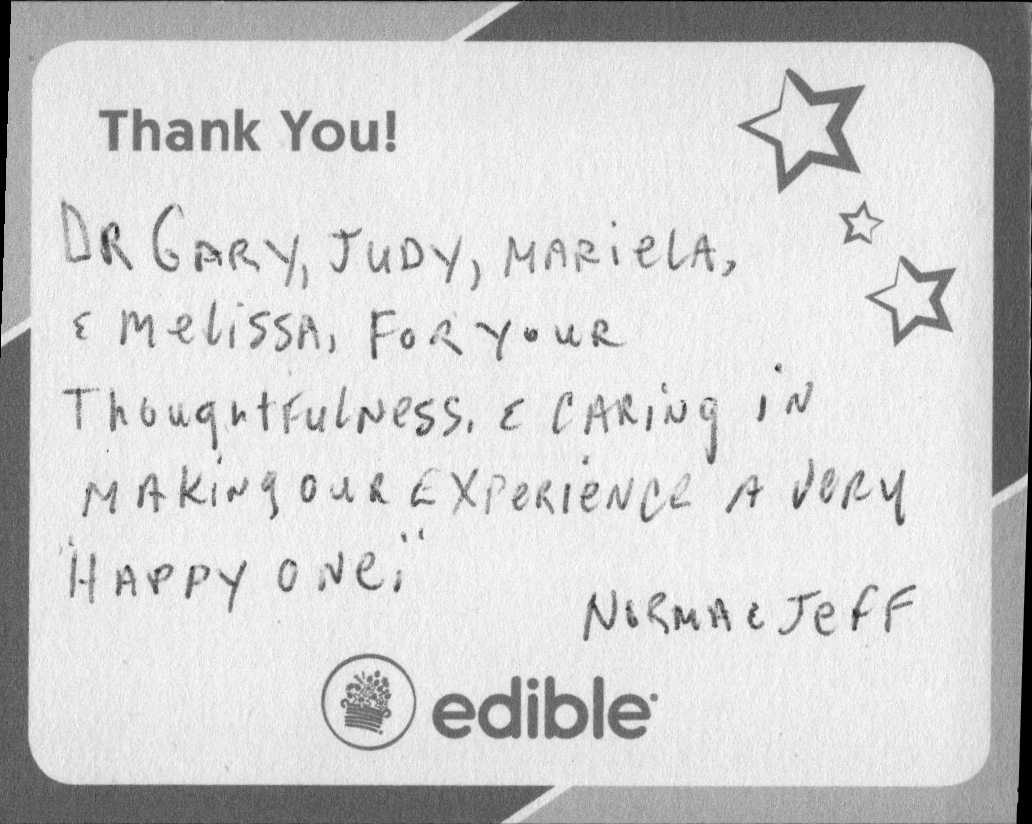 Thank You!
DR GARY, JUDY, MARIELA,
& MELISSA, FOR YOUR
THOUGHTFULNESS, & CARING IN
MAKING OUR EXPERIENCE A VERY
"HAPPY ONE."
NORMA & JEFF
edible